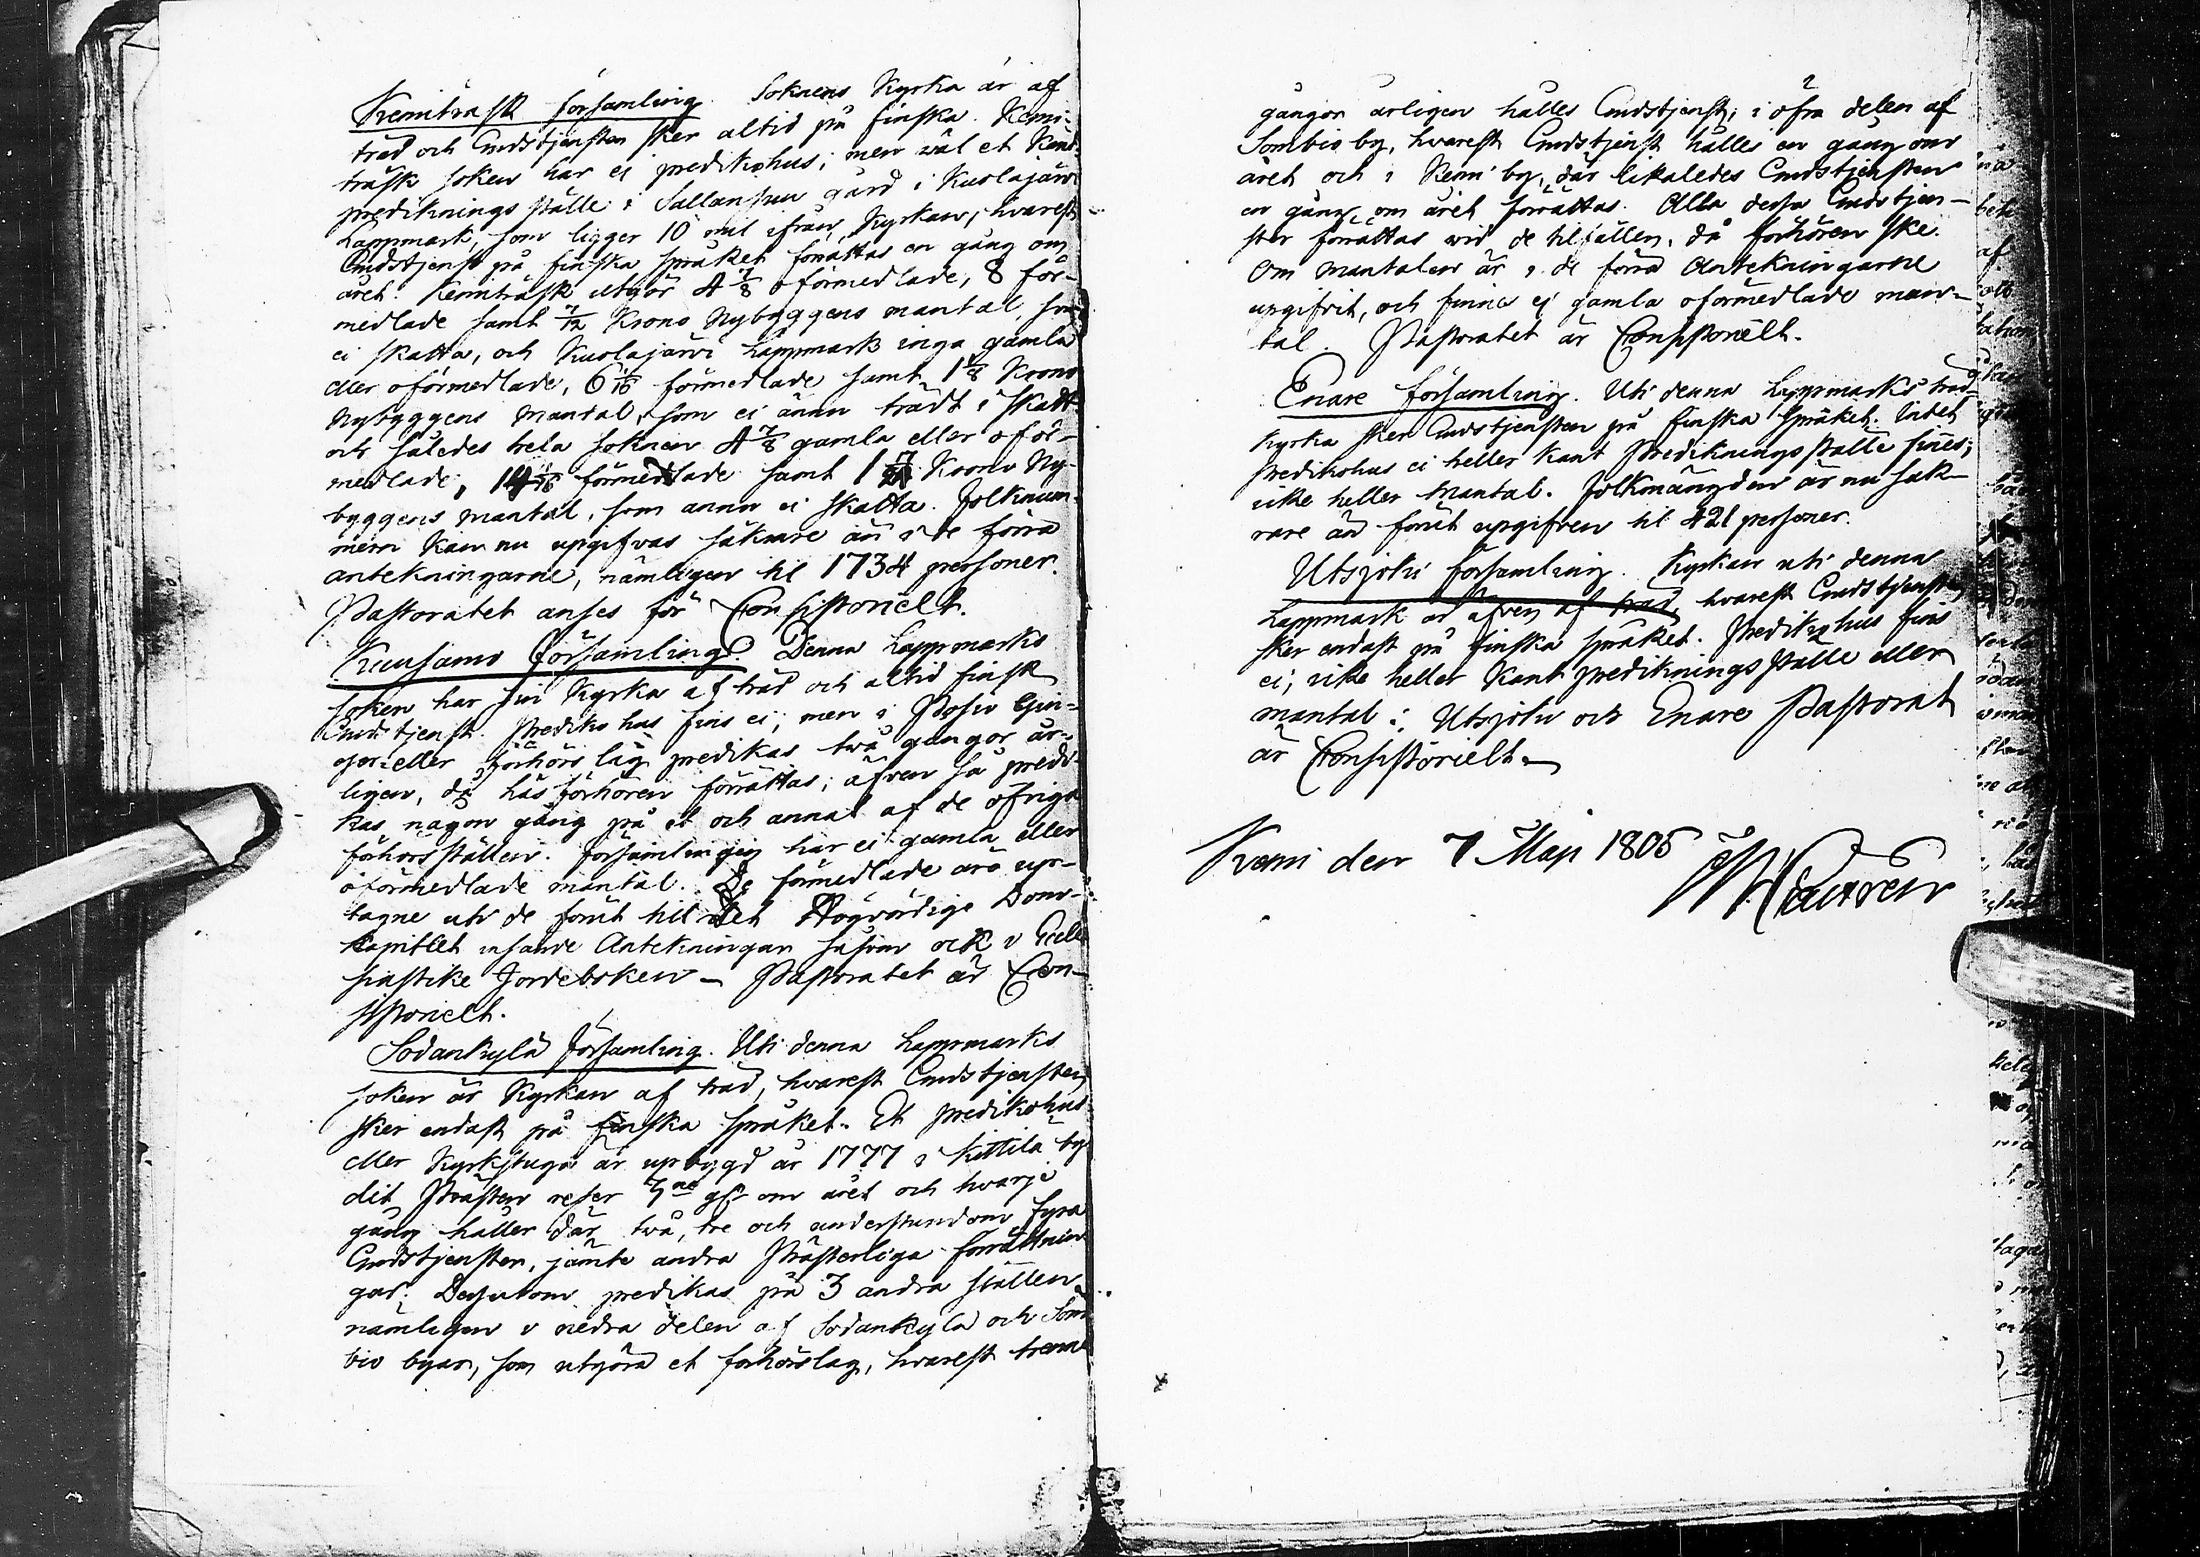 Kemiträsk församling. Soknens Kyrka är af
träd och Gudstjensten sker altid på finska. Kemi-
träsk soken har ei predikohus; men wäl et Kand
predikningsställe i Sallansuu gård i Kuolajärvi
Lappmark, som ligger 10 mil ifrån Kyrkan, hvarest
Gudstjenst på finska språket förrättas en gång om
året. Kemiträsk utgör 4 7/8 oförmedlade, 8 för-
medlade samt 7/12 Krono Nybyggens mantal, som
ei skatta, och Kuolajärvi Lappmark inga gamla
eller oförmedlade, 6 1/16 förmedlade samt 1 1/8 Krono
Nybyggens mantal, som ei ännu trädt i skatt
och således hela soknen 4 7/8 gamla eller oför-
medlade, 14 1/16 förmedlade samt 1 Krono Ny-
byggens mantal, som ännu ei skatta. Folknum-
mern kan nu upgifvas säkrare än i de förra
antekningarne, nämligen til 1734 personer.
Pastoratet anses för Consistorielt.
Kuusamo Församling. Denna Lappmarks
soken har sin Kyrka af träd och altid finsk
Gudstjenst. Predikohus fins ei; men i Posio
eller förhörs lag predikas två gångor år-
ligen, då hus förhören förrättas; äfven så predi-
kas någon gång på et och annat af de öfriga
förhörsställen. Församlingen har ei gamla eller
oförmedlade mantal. De förmedlade äro up-
tagne uti de förut till det Högvördige Dom-
kapitlet insände Antekningar såsom ock i Eccle
siastike Jordeboken – Pastoratet är Con-
sistorielt.
Sodankylä församling. Uti denna Lappmarks
soken är Kyrkan af träd, hvarest Gudstjensten
sker endast på finska språket. Et predikohus
eller Kyrkstuga är upbygd år 1777 i Kittilä by
dit Prästen reser 3ne gr om året och hvarje
gång håller där två, tre och understundom fyra
Gudstjenster, jämte andra Prästerliga förrättnin
gar. Dessutom predikas på 3 andra ställen,
nämligen i nedra delen af Sodankylä och Som
bio byar, som utgöra et förhörslag, hvarest trenne
gångor årligen hålles Gudstjenst; i öfra delen af
Sombio by, hvarest Gudstjenst hålles en gång om
året och i Kemi by, där likaledes Gudstjensten
en gång om året förrättas. Alla dessa Gudstjen-
ster förrättas wid de tilfällen, då förhören ske.
Om mantalen är i de förra Antekningarne
upgifvit, och finna ej gamla oförmedlade man-
tal. Pastoratet är Consistorielt.
Enare församling. Uti denna Lappmarks träd
kyrka sker Gudstjensten på finska språket. Intet
predikohus ei heller kant Predikningsställe fines;
icke heller mantal. Folkmängden är nu säk-
rare än förut upgifven til 421 personer.
Utsjoki församling. Kyrkan uti denna
Lappmark är äfven af träd, hvarest Gudstjensten
sker endast på finska språket. Predikohus fins
ei, icke heller kant predikningsställe eller
mantal. Utsjoki och Enare Pastorat
är Consistorielt.
Kemi den 7 Maji 1806